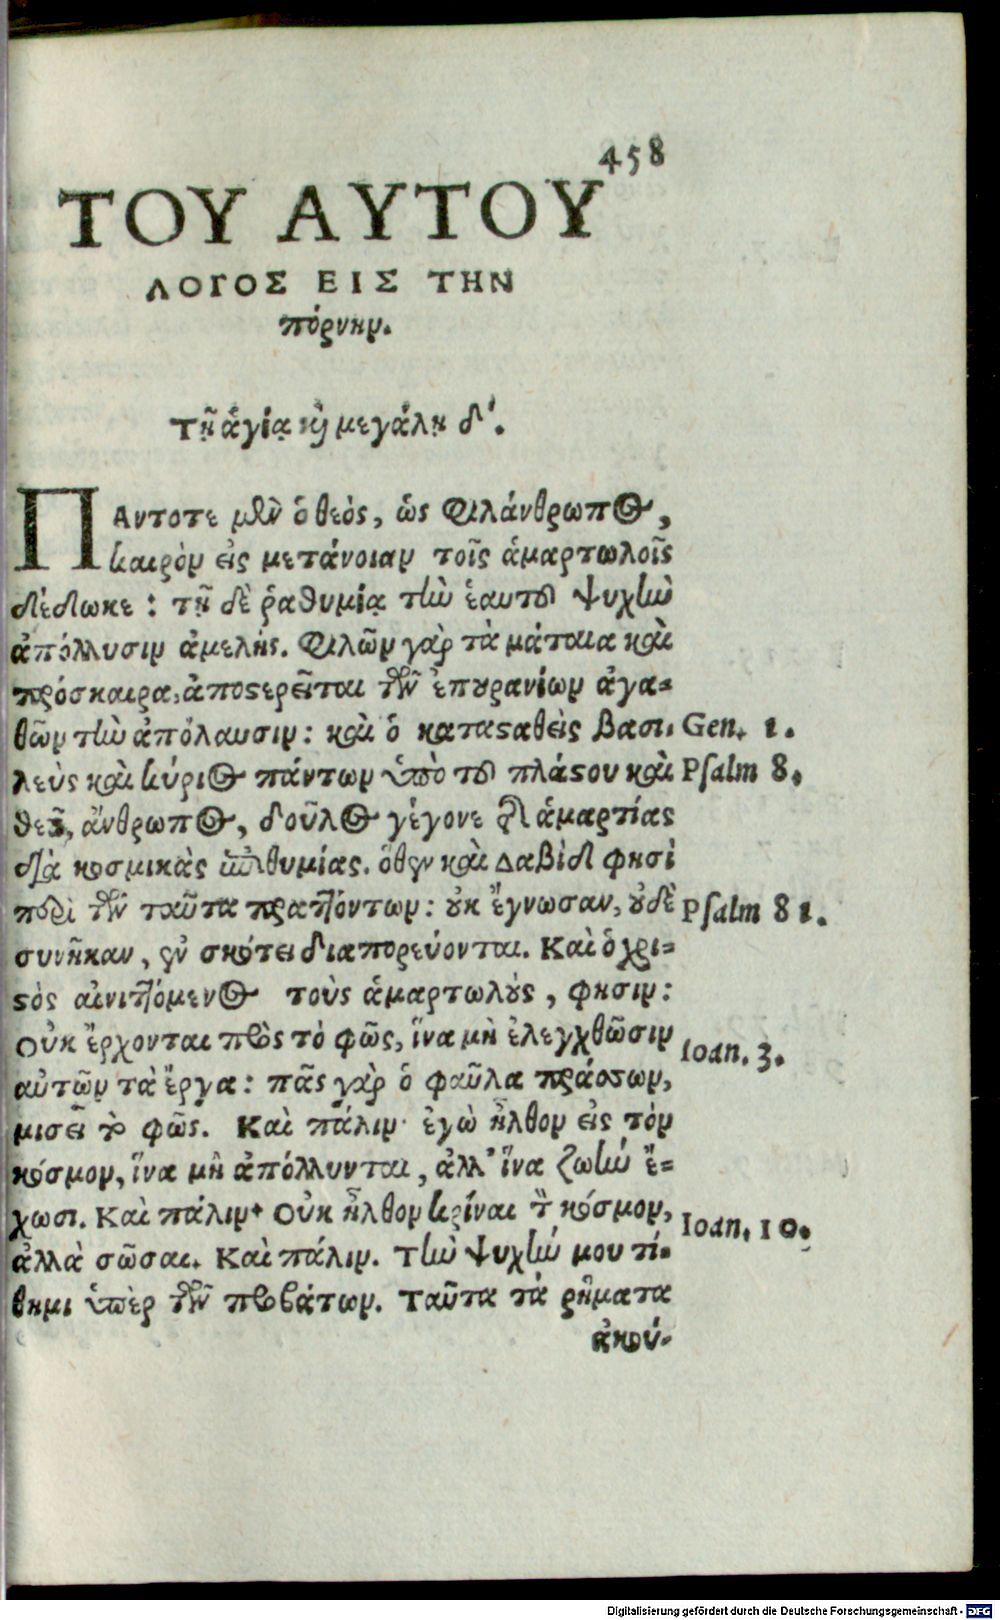 458
ΤΟΥ ΑΥΤΟΥ
ΛΟΓΟΣ ΕΙΣ ΤΗΝ
πόρνην.
Τῇ ἁγίᾳ καὶ μεγάλῃ δ'.
ΠΑντοτε μὲν ὁ θεὸς, ὡς φιλάνθρωπος,
καιρὸν εἰς μετάνοιαν τοῖς ἁμαρτωλοῖς
δέδωκε : τῇ δὲ ῥαθυμίᾳ τὴν ἑαυτοῦ ψυχὴν
ἀπόλλυσιν ἀμελής. Φιλῶν γὰρ τὰ μάταια καὶ
πρόσκαιρα, ἀποστερεῖται τῶν ἐπουρανίων ἀγα-
θῶν τὴν ἀπόλαυσιν: καὶ ὁ κατασταθεὶς βασι- Gen. 1.
λεὺς καὶ κύριος πάντων ὑπὸ τοῦ πλάστου καὶ Psalm 8.
θεοῦ, ἄνθρωπος, δοῦλος γέγονε τῆς ἁμαρτίας
διὰ κοσμικὰς ἐπιθυμίας. ὅθεν καὶ Δαβὶδ φησὶ
περὶ τῶν ταῦτα πραττόντων: οὐκ ἔγνωσαν, οὐδὲ Psalm 81.
συνῆκαν, ἐν σκότει διαπορεύονται. Καὶ ὁ χρι-
στὸς αἰνιττόμενος τοὺς ἁμαρτωλοὺς, φησιν:
Οὐκ ἔρχονται πρὸς τὸ φῶς, ἵνα μὴ ἐλεγχθῶσιν Ioan. 3.
αὐτῶν τὰ ἔργα: πᾶς γὰρ ὁ φαῦλα πράσσων,
μισεῖ τὸ φῶς. Καὶ πάλιν· ἐγὼ ἦλθον εἰς τὸν
κόσμον, ἵνα μὴ ἀπόλλυνται, ἀλλ' ἵνα ζωὴν ἔ-
χωσι. Καὶ πάλιν· Οὐκ ἦλθον κρίναι τὸν κόσμον, Ioan. 10.
ἀλλὰ σῶσαι. Καὶ πάλιν. Τὴν ψυχήν μου τί-
θημι ὑπὲρ τῶν προβάτων. Ταῦτα τὰ ῥήματα
ἀκού-
Digitalisierung gefördert durch die Deutsche Forschungsgemeinschaft - DFG